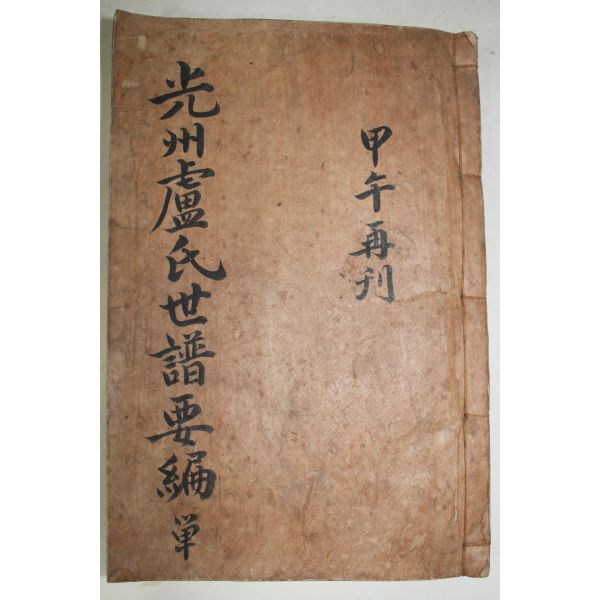 甲午再刊
光州盧氏世譜要編 単